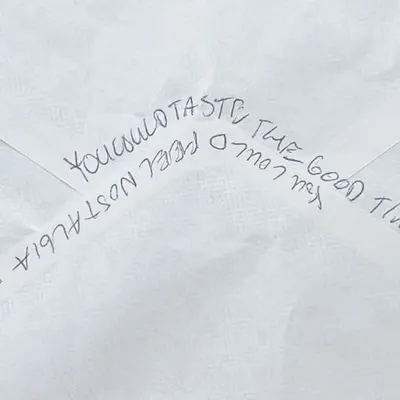 YOU COULD TASTE THE GOOD TIM
You could FEEL NOSTALGIA